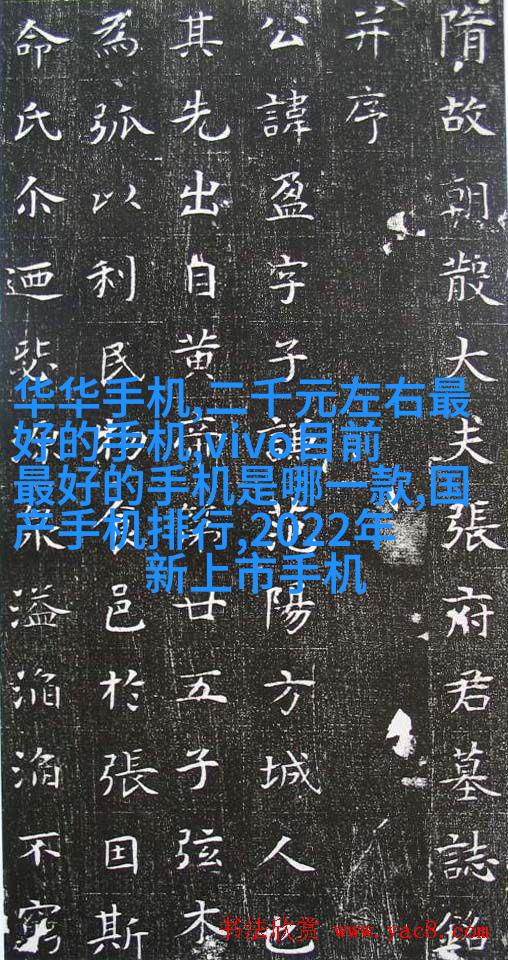 隋故朝散大夫張府君墓誌銘
并序
公諱盈字子范陽方城人也
其先出自黃帝第廿五子弦木
為弧以利民食邑於張因斯
命氏尒迺溢滔滔不窮
华华手机,二千元左右最
好的手机,vivo目前
最好的手机是哪一款,国
产手机排行,2022年
新上市手机
书法欣赏 www.yac8.com